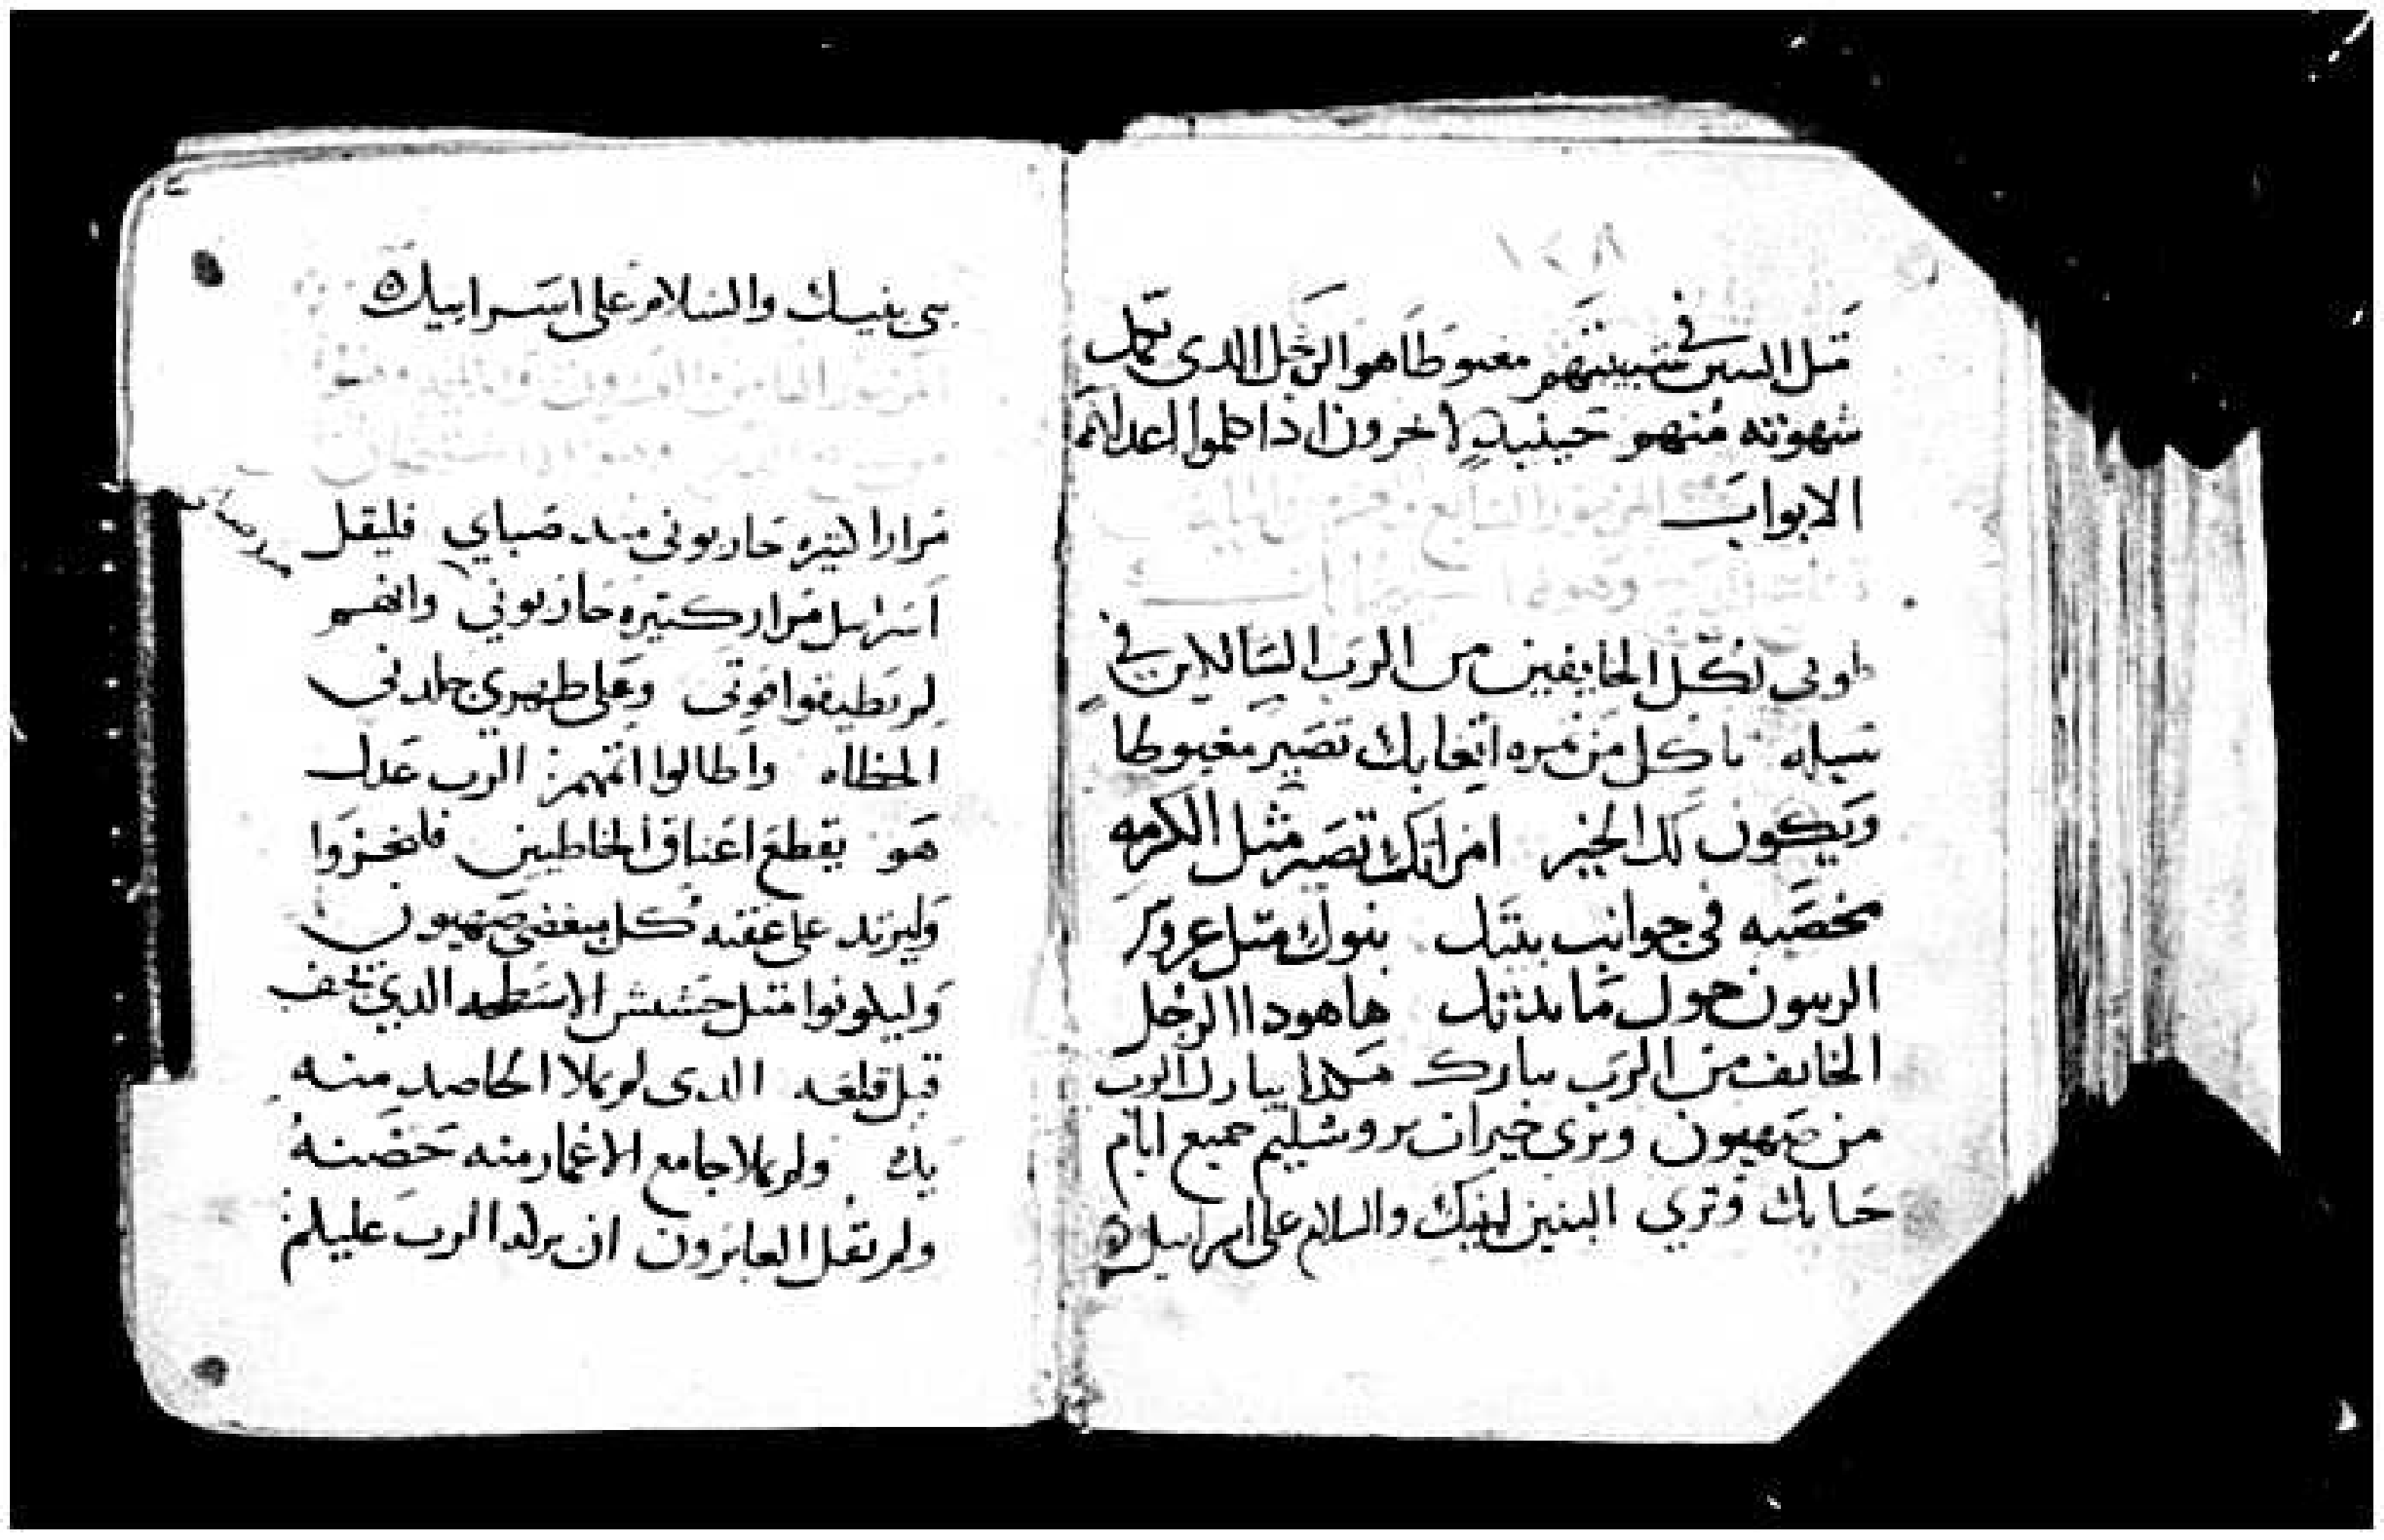 ١٢٨
مثل البنين في شبيبتهم مغبوطا هو الرجل الدى تكمل
شهوته منهم حينيد لا يخرون ادا كلموا اعداهم
الابواب
طوبى لكل الخايفين من الرب السالكين في
سبله تاكل من تمره اتعابك تصير مغبوطا
ويكون لك الخير امراتك تصير مثل الكرمه
مخصبه في جوانب بيتك بنوك متل عروق
الزيتون حول مايدتك هاهودا الرجل
الخايف من الرب يبارك هكدا يباركك الرب
من صهيون وتري خيرات يروشليم جميع ايام
حياتك وتري البنين لبنيك والسلام على اسراييل
بني بنيك والسلام على اسراييل
مرارا كتيره حاربوني مند صباي فليقل
اسراييل مرار كتيره حاربوني وانهم
لم يطيقوا قوتى وعلى ظهري جلدنى
الخطاه واطالوا اتمهم الرب عدل
هو يقطع اعناق الخاطيين فليخزوا
وليرتد على عقبه كل مبغضى صهيون
وليكونوا متل حشيش الاسطحه الدي يجف
قبل قلعه الدى لم يملا الحاصد منه
يده ولم يملا جامع الاغمار منه حضنه
ولم تقل العابرون ان بركه الرب عليكم